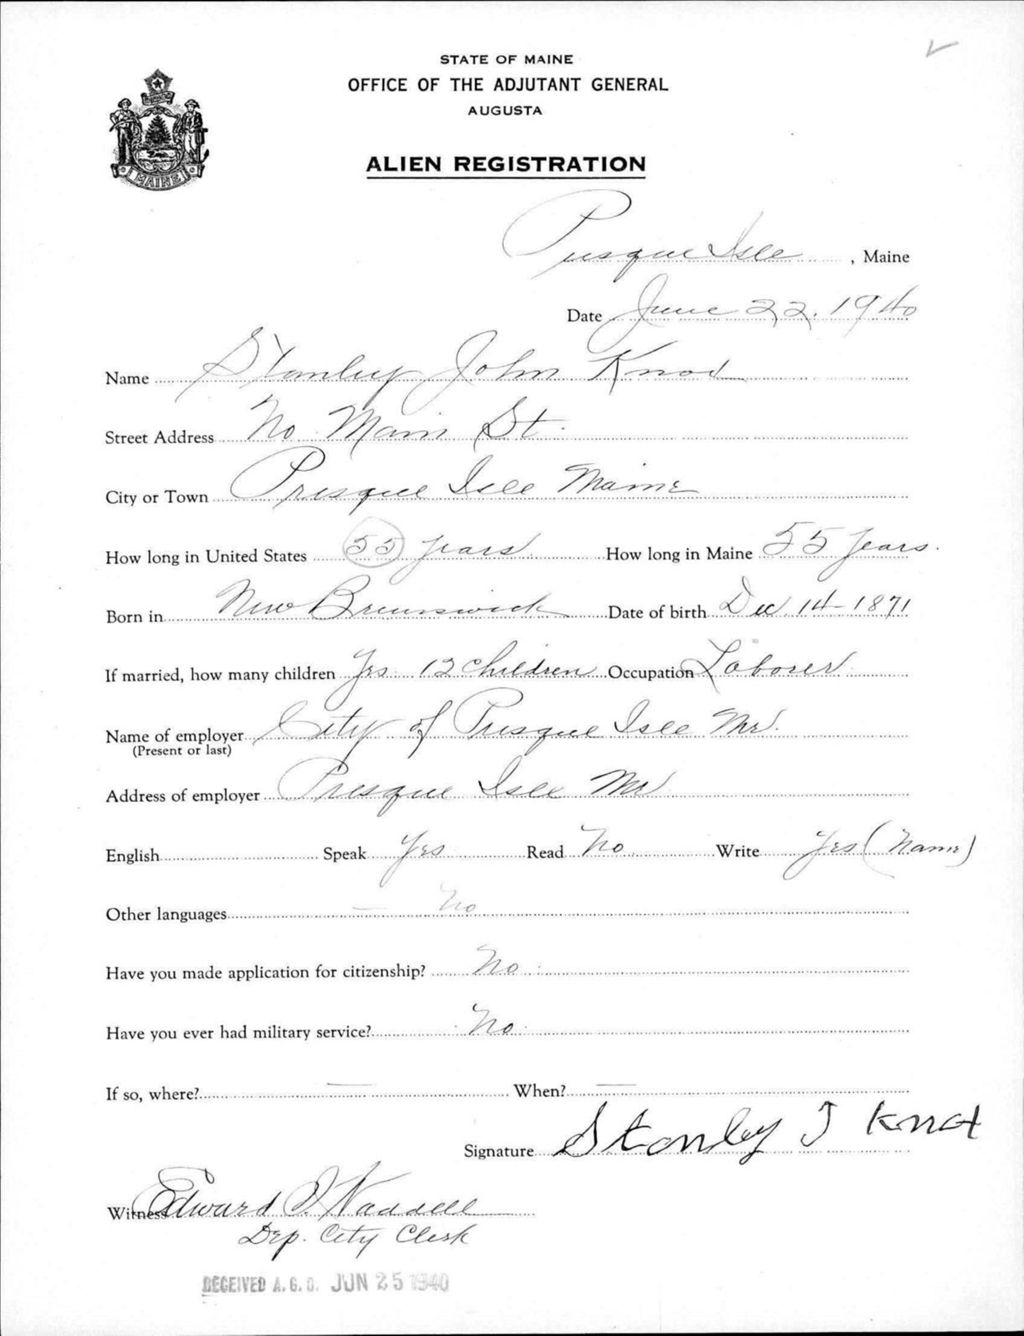 STATE OF MAINE
OFFICE OF THE ADJUTANT GENERAL
AUGUSTA
MAINE
ALIEN REGISTRATION
Presque Isle, Maine
Date June 22, 1940
Name Stanley John
Street Address No Main St.
City or Town Presque Isle Maine
How long in United States 55 years How long in Maine 55 years.
Born in New Brunswick Date of birth Dec 14-1871
If married, how many children Yes 12 children Occupation Laborer
Name of employer City of Presque Isle Me.
(Present or last)
Address of employer Presque Isle Me
English Speak Yes Read No Write Yes (Name)
Other languages — No
Have you made application for citizenship? No
Have you ever had military service? No
If so, where? — When? —
Signature Stanley J
Witness Edward I. Waddell
Dep. City Clerk
RECEIVED A.G.O. JUN 25 1940